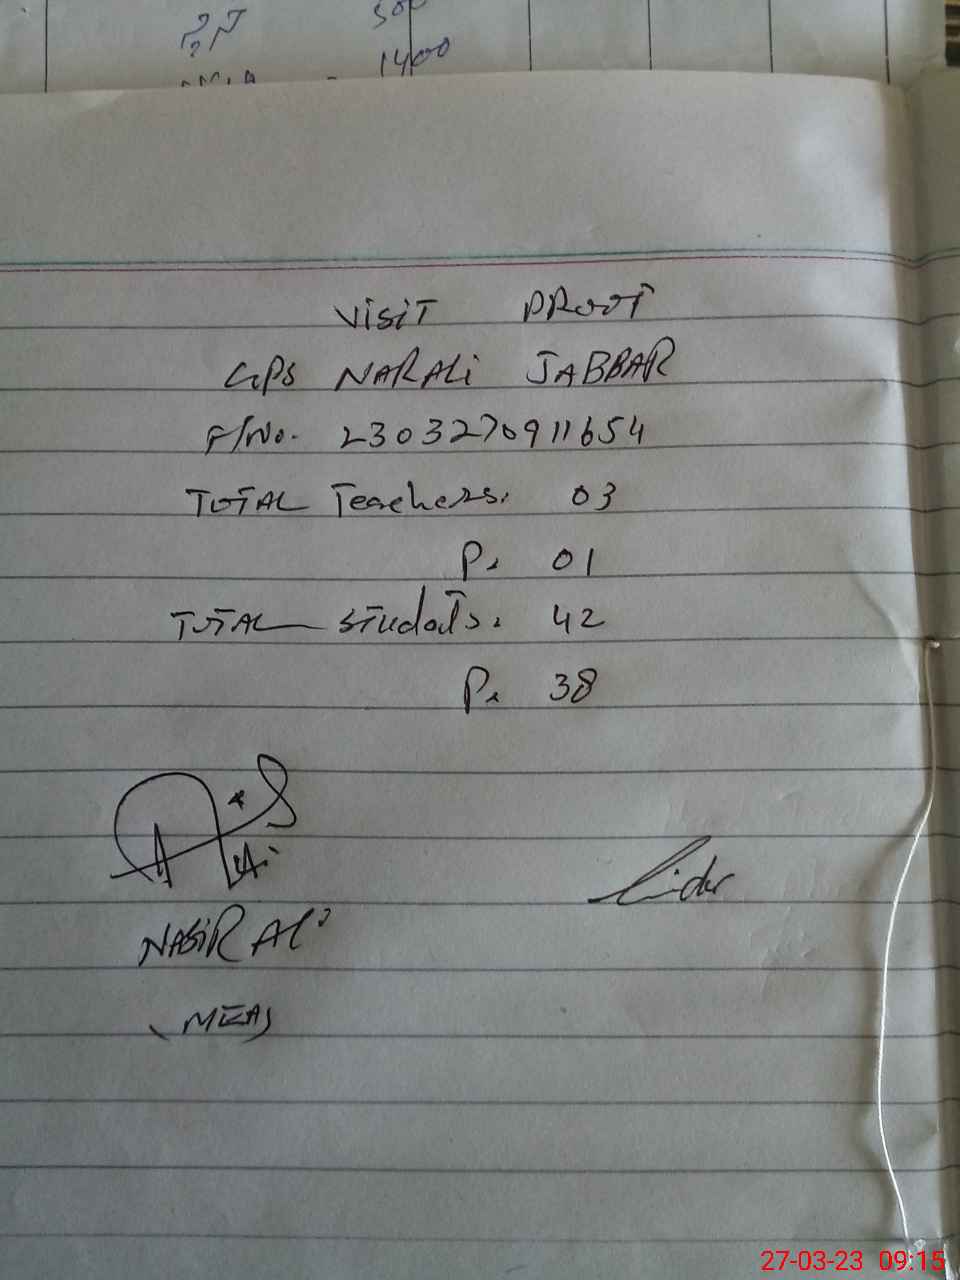 500
1400
VISIT PROOF
GPS NARALI JABBAR
F/No. 2303270911654
TOTAL Teachers. 03
P. 01
TOTAL students. 42
P. 38
NASIR ALi
(MEA)
27-03-23 09:15